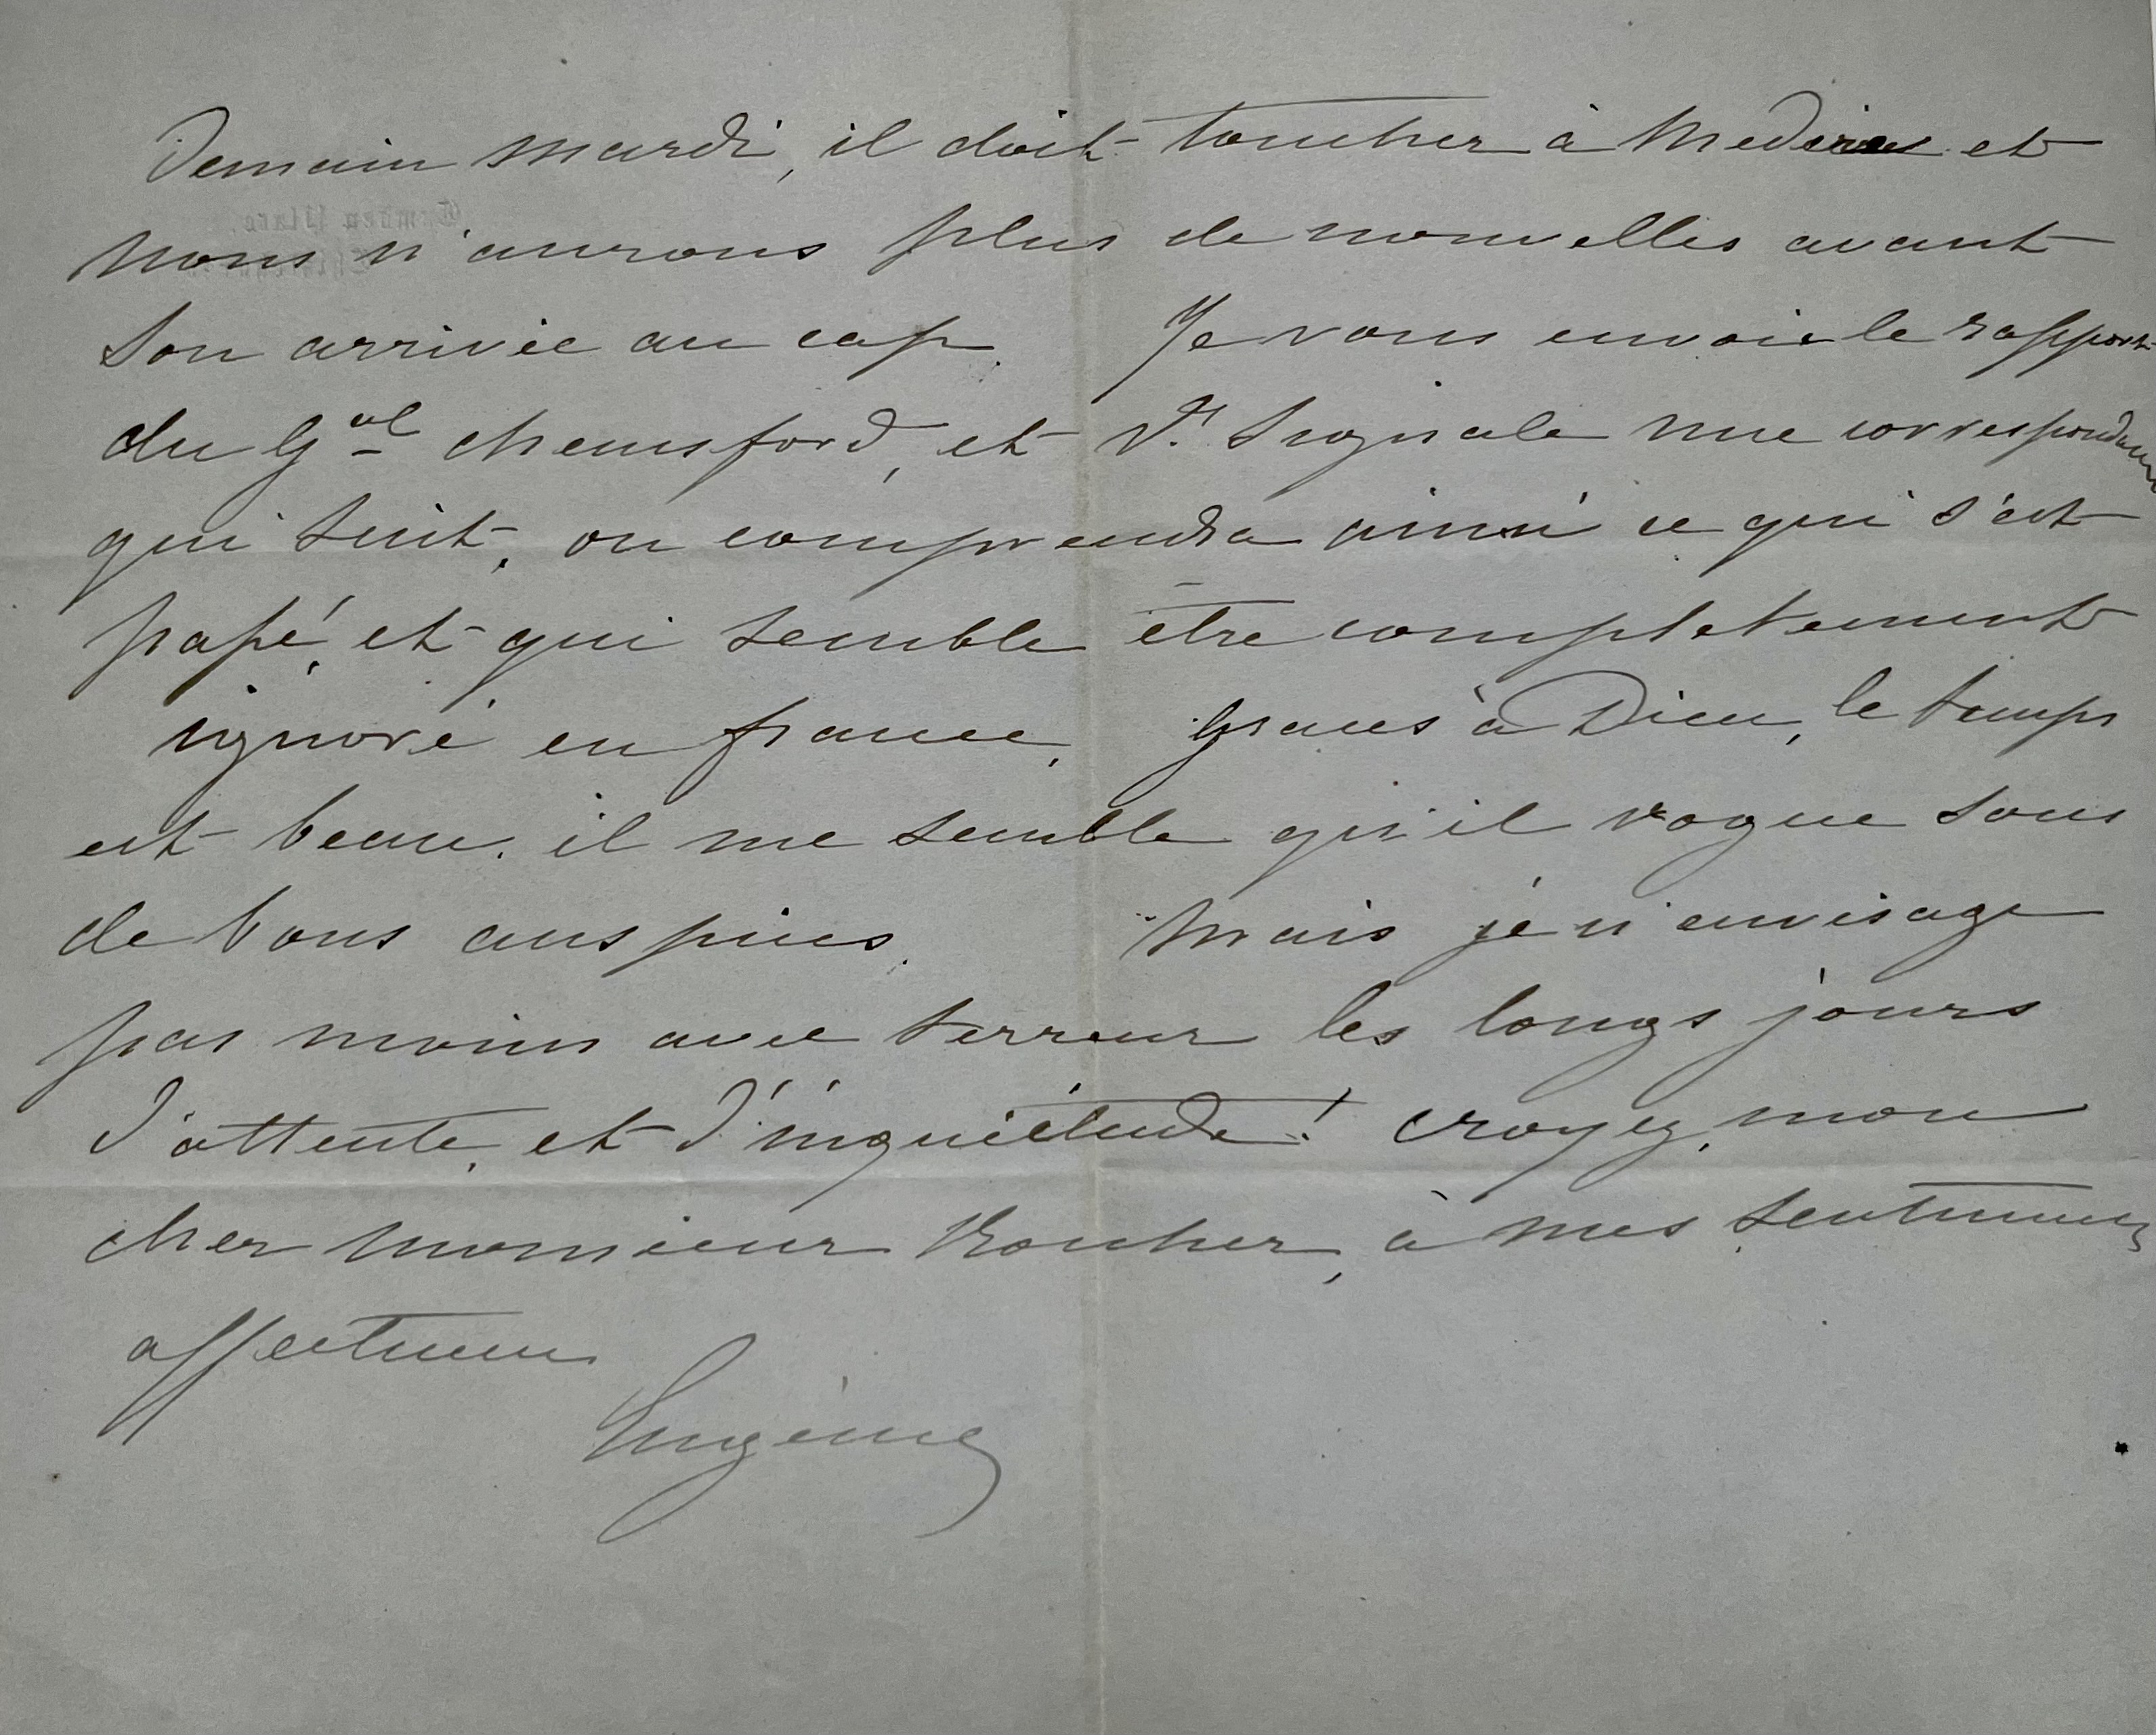 Demain mardi, il doit toucher à Mederes et
nous n'aurons plus de nouvelles avant
son arrivée au cap. Je vous envoie le rapport
du Gal Chemsford, et vs signale une correspondance
qui suit, on comprendra ainsi ce qui s'est
passé, et qui semble être completement
ignoré en france, Graces à Dieu, le temps
est beau. il me semble qu'il vogue sous
de bons auspices. Mais je n'envisage
pas moins avec terreur les longs jours
d'attente, et d'inquiétude! croyez, mon
cher monsieur Rouher, à mes sentiments
affectueux
Eugénie